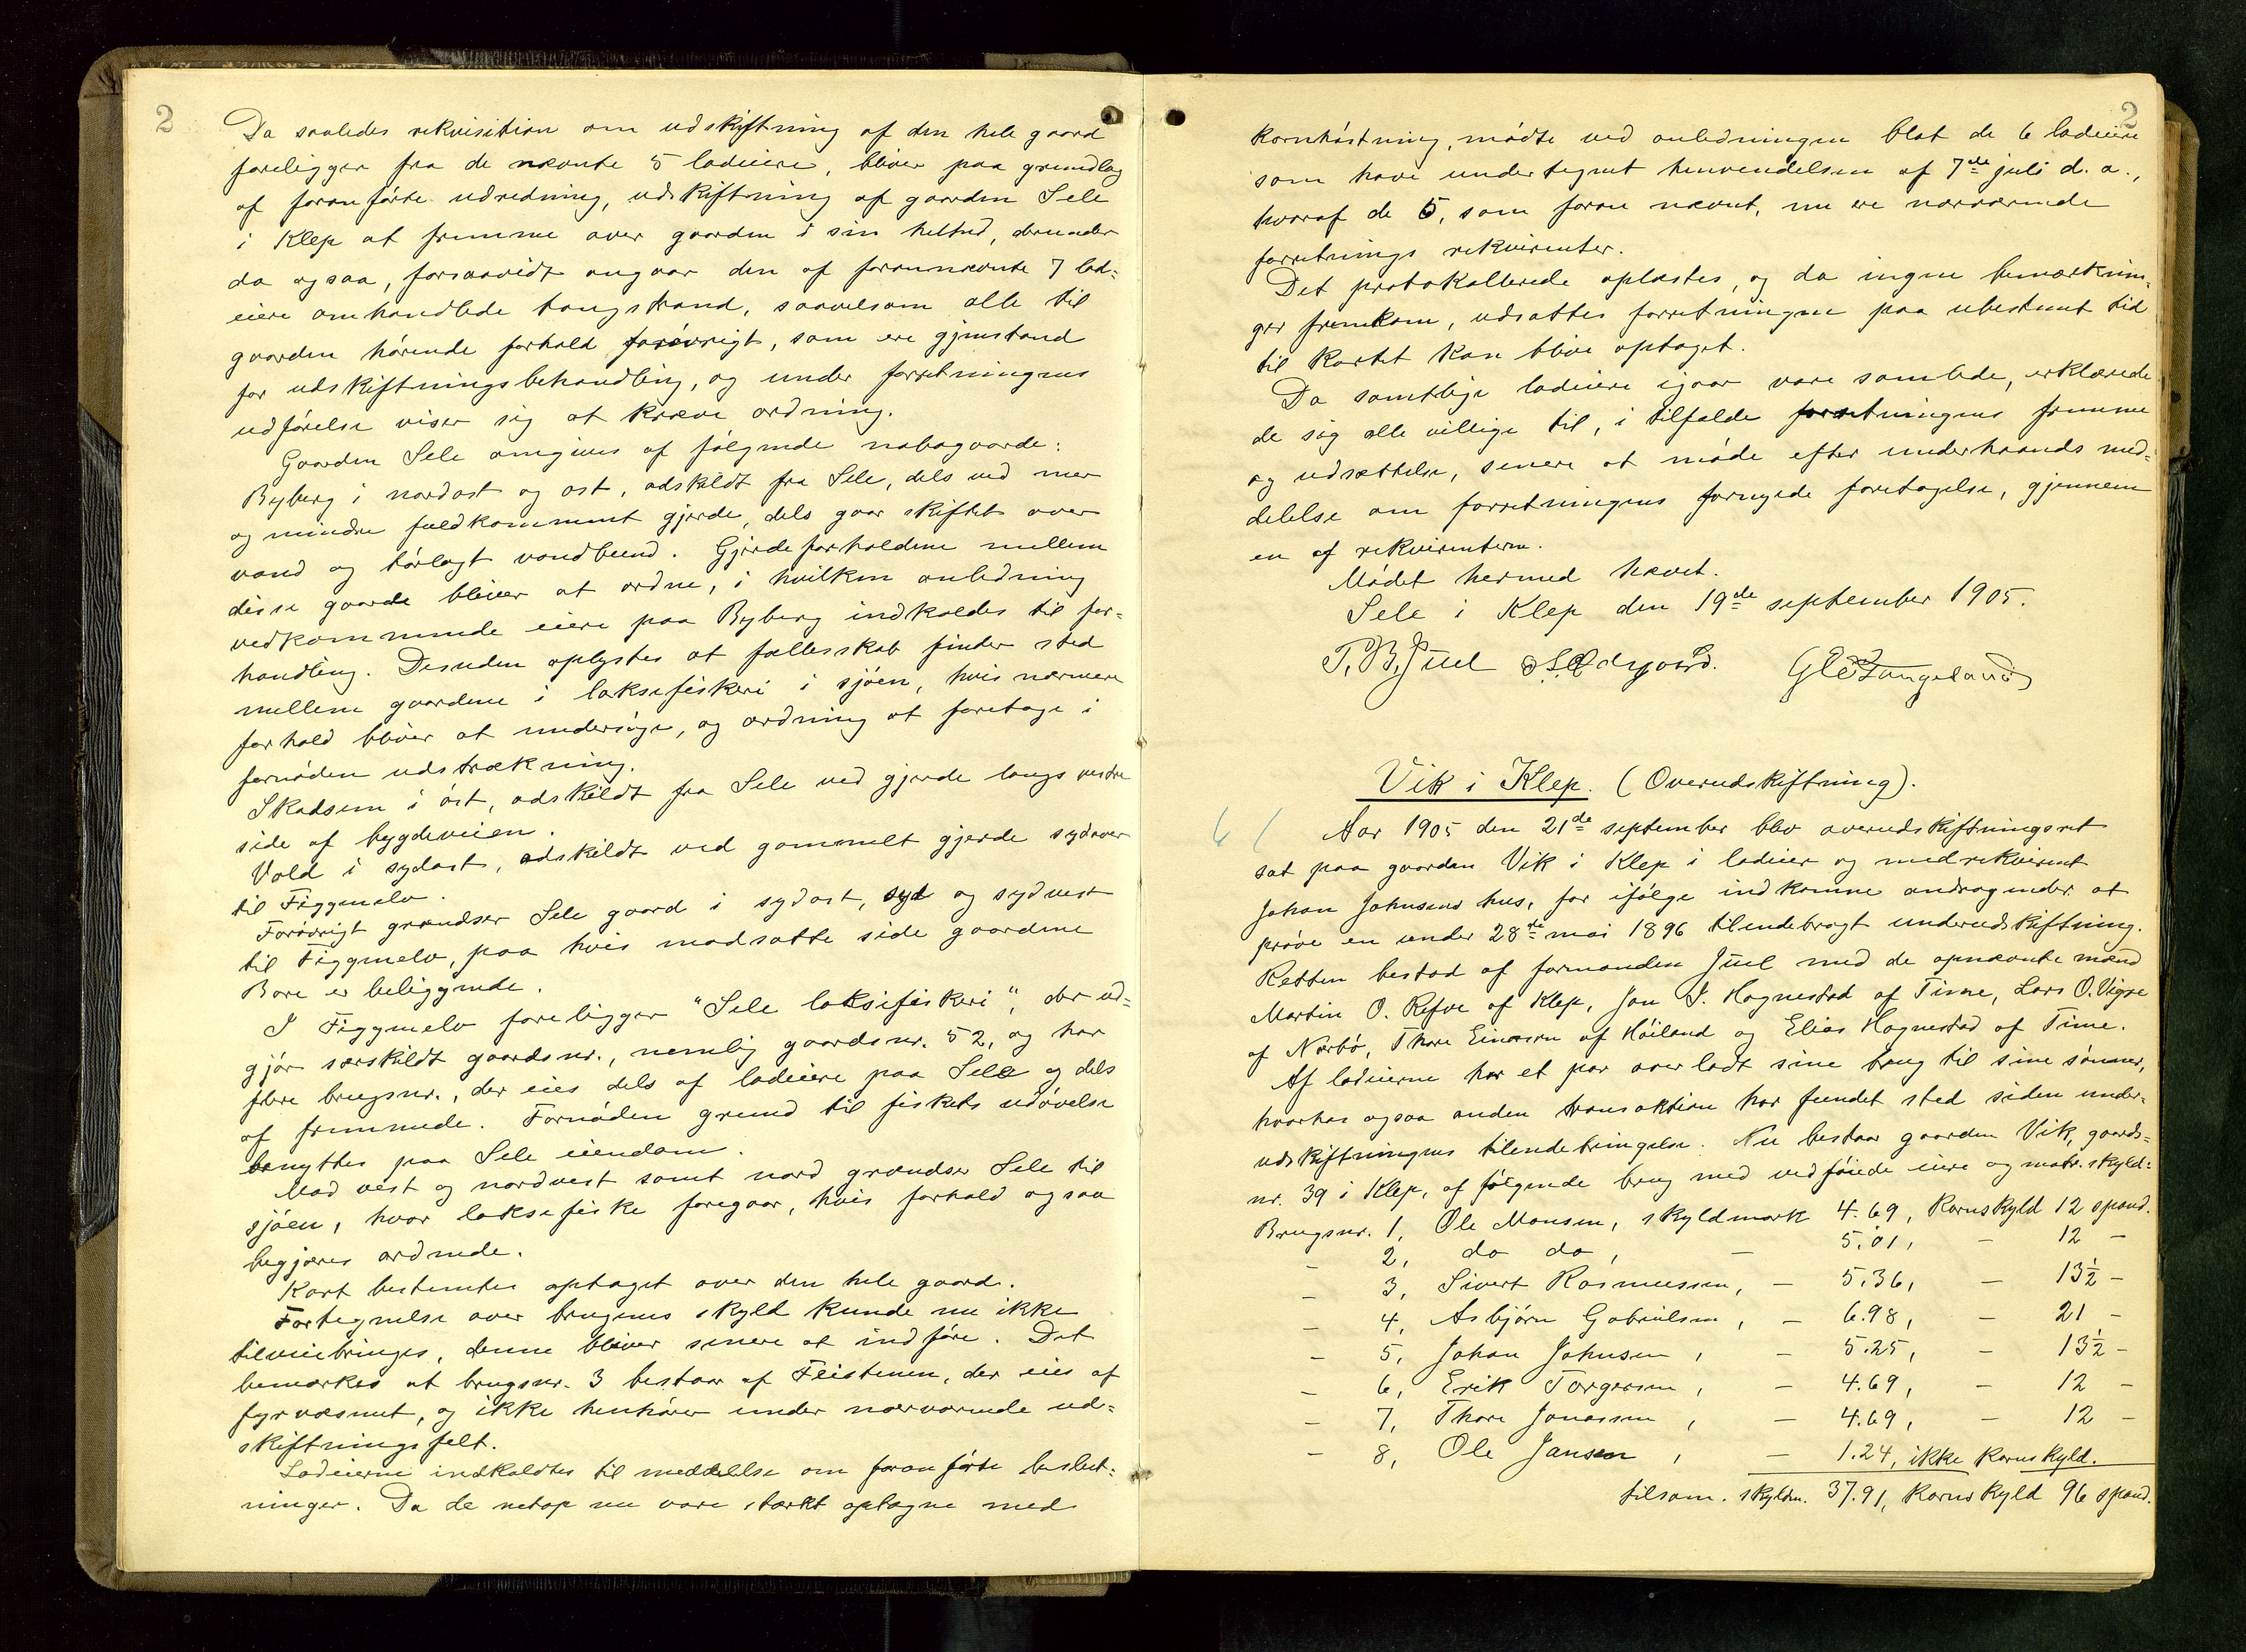 2
Da saaledes rekvisition om udskiftning af den hele gaard
foreligger fra de nævnte 5 lodeiere, bliver paa grundlag
af foranførte udredning, udskiftning af gaarden Sele
i Klep at fremme over gaarden i sin helhed, derunder
da ogsaa, forsaavidt angaar den af forannævnte 7 lod-
eiere omhandlede tangstrand, saavelsom alle til
gaarden hørende forhold forøvrigt, som ere gjenstand
for udskiftningsbehandling, og under forretningens
udførelse viser sig at kræve ordning.
Gaarden Sele omgives af følgende nabogaarde:
Byberg i nordost og ost, adskildt fra Sele, dels ved mer
og mindre fuldkomment gjerde, dels gaar skiftet over
vand og tørlagt vandbund. Gjerdeforholdene mellem
disse gaarde bliver at ordne, i hvilken anledning
vedkommende eiere paa Byberg indkaldes til for-
handling. Desuden oplystes at fællesskab finder sted
mellem gaardene i laksefiskeri i sjøen, hvis nærmere
forhold bliver at undersøge, og ordning at foretage i
fornøden udstrækning.
Skadsem i øst, adskildt fra Sele ved gjerde langs vestre
side af bygdeveien.
Vold i sydost, adskildt ved gammelt gjerde sydover
til Figgenelv.
Forøvrigt grændser Sele gaard i sydost, syd og sydvest
til Figgenelv, paa hvis modsatte side gaardene
Bore er beliggende.
I Figgenelv foreligger "Sele laksefiskeri", der ud-
gjør særskildt gaardsnr., nemlig gaardsnr. 52, og har
flere brugsnr., der eies dels af lodeiere paa Sele og dels
af fremmede. Fornøden grund til fiskets udøvelse
benyttes paa Sele eiendom.
Mod vest og nordvest samt nord grændser Sele til
sjøen, hvor laksefiske foregaar, hvis forhold ogsaa
begjæres ordnede.
Kart bestemtes optaget over den hele gaard.
Fortegnelse over brugenes skyld kunde nu ikke
tilveiebringes, denne bliver senere at indføre. Det
bemærkes at brugsnr. 3 bestaar af Feistenen, der eies af
fyrvæsenet, og ikke henhører under nærværende ud-
skiftningsfelt.
Lodeierne indkaldtes til meddelelse om foranførte beslut-
ninger. Da de netop nu vare stærkt optagne med
2
kornhøstning, mødte ved anledningen blot de 6 lodeiere
som have undertegnet henvendelsen af 7de juli d. a.,
hvoraf de 5, som foran nævnt, nu ere nærværende
forretnings rekvirenter.
Det protokollerede oplæstes, og da ingen bemærknin-
ger fremkom, udsattes forretningen paa ubestemt tid
til kartet kan blive optaget.
Da samtlige lodeiere igaar vare samlede, erklærede
de sig alle villige til, i tilfælde forretningens fremme
og udsættelse, senere at møde efter underhaands med-
delelse om forretningens fornyede foretagelse, gjennem
en af rekvirenterne.
Mødet hermed hævet.
Sele i Klep den 19de september 1905.
T. B. Juel
Vik i Klep. (Overudskiftning).
Aar 1905 den 21de september blev overudskiftningsret
sat paa gaarden Vik i Klep i lodeier og medrekvirent
Johan Johnsens hus, for ifølge indkomne andragender at
prøve en under 28de mai 1896 tilendebragt underudskiftning.
Retten bestod af formanden Juel med de opnævnte mænd
Martin O. Refve af Klep, Jon J. Hognestad af Time, Lars O. Vigre
af Nærbø, Thore Einarsen af Høiland og Elias Hognestad af Time.
Af lodeierne har et par overladt sine brug til sine sønner,
hvorhos ogsaa anden transaktion har fundet sted siden under-
udskiftningens tilendebringelse. Nu bestaar gaarden Vik, gaards-
nr. 39 i Klep, af følgende brug med vedføiede eiere og matr. skyld:
Brugsnr. 1, Ole Monsen, skyldmark 4.69, Kornskyld 12 spand.
- 2, do do, - 5.01, - 12 -
- 3, Sivert Rasmussen, - 5.36, - 13½ -
- 4, Asbjørn Gabrielsen, - 6.98, - 21 -
- 5, Johan Johnsen, - 5.25, - 13½ -
- 6, Erik Torgersen, - 4.69, - 12 -
- 7, Thore Jonassen, - 4.69, - 12 -
- 8, Ole Jansen, - 1.24, ikke Kornskyld.
tilsam. skyldm. 37.91, Kornskyld 96 spand.